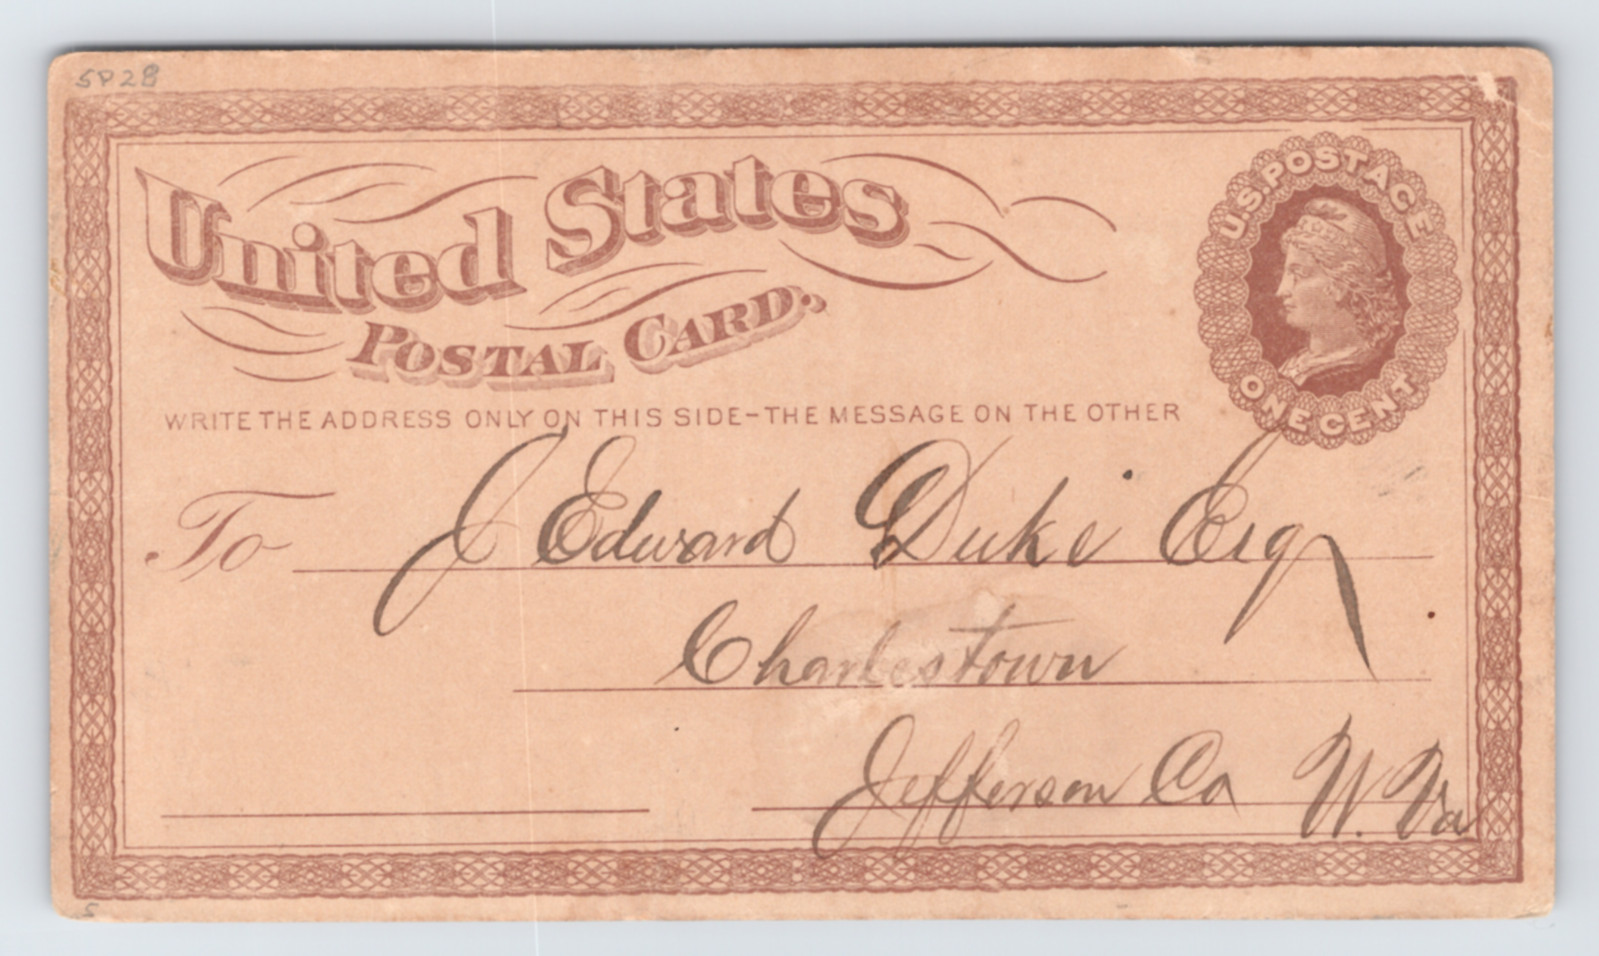 5P28
United States
Postal Card.
U.S. POSTAGE
ONE CENT
WRITE THE ADDRESS ONLY ON THIS SIDE-THE MESSAGE ON THE OTHER
To J Edward Duke Esq
Charlestown
Jefferson Co W. Va
5